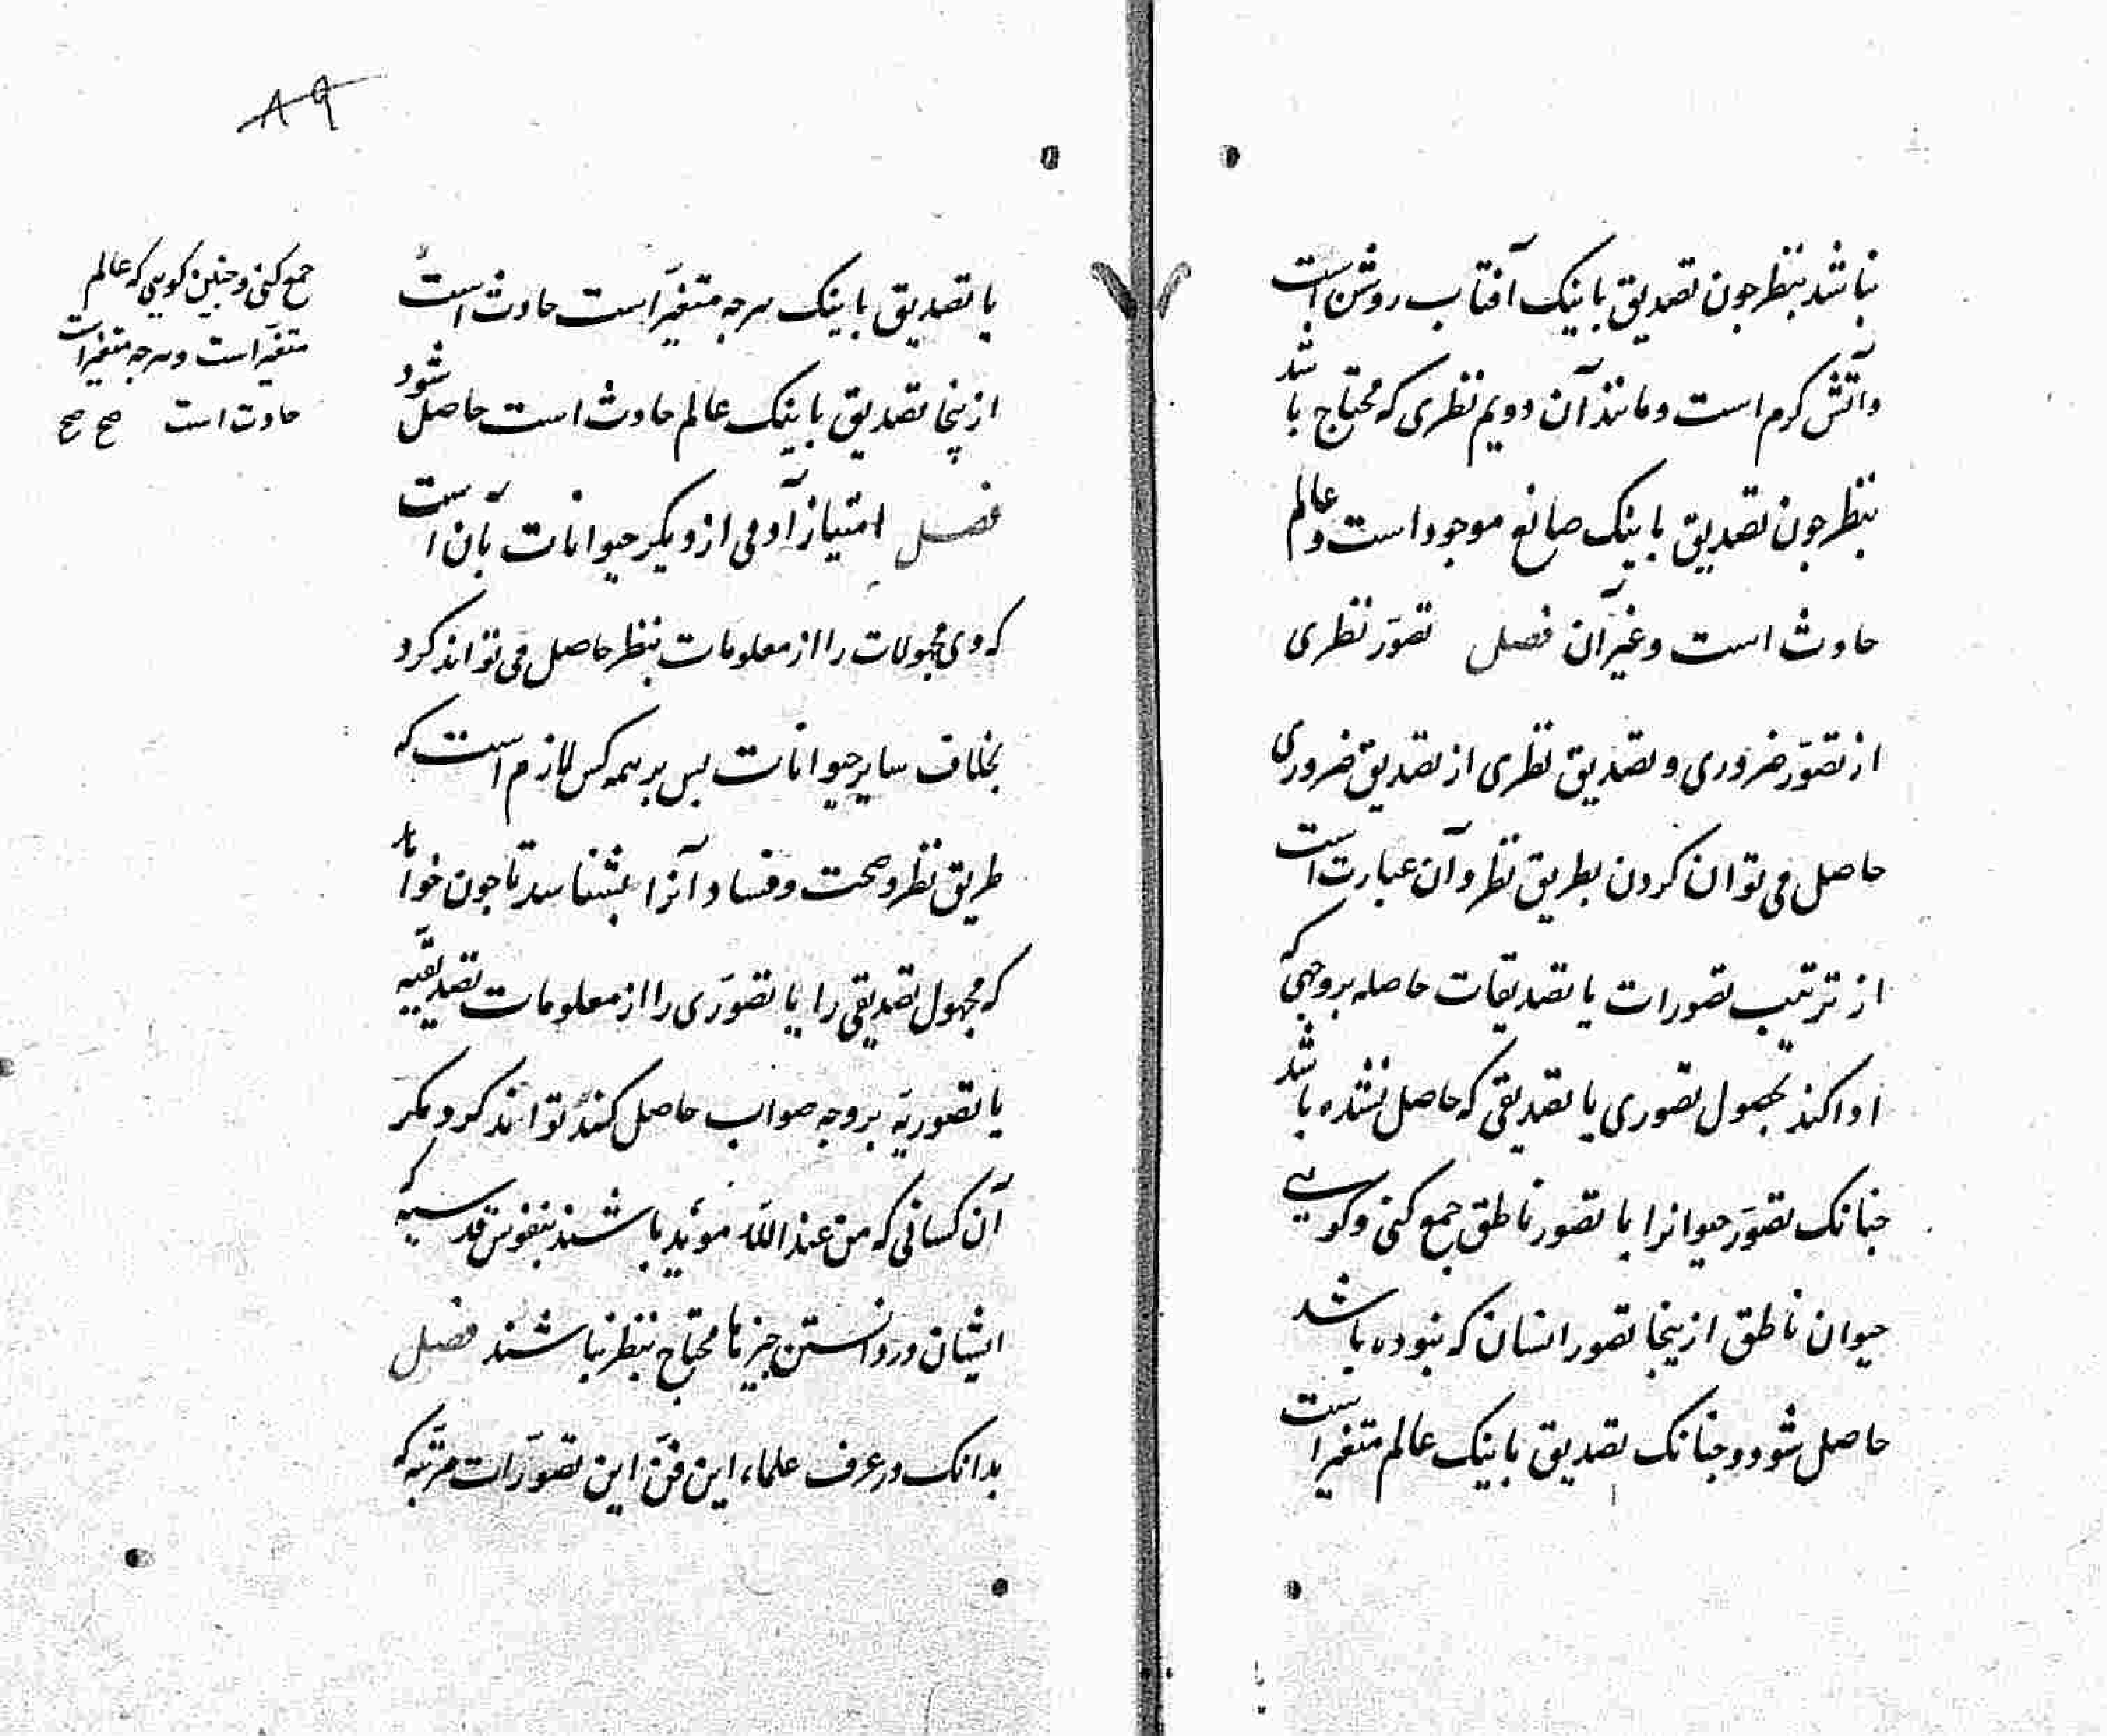 نباشد بنظر جون تصدیق بانیک آفتاب روشن است
وآتش کرم است ومانند آن دویم نظری که محتاج باشد
بنظر جون تصدیق باینک صانع موجود است وعالم
حادث است وغیر آن فصل تصوّر نظری
از تصوّر ضروری وتصدیق نظری از تصدیق ضروری
حاصل می توان کردن بطریق نظر وآن عبارت است
از ترتیب تصورات یا تصدیقات حاصله بر وجهی که
ادا کند بحصول تصوری یا تصدیقی که حاصل نشده باشد
جنانک تصوّر حیوانرا با تصوّر ناطق جمع کنی وکویی
حیوان ناطق ازینجا تصور انسان که نبوده باشد
حاصل شود وجنانک تصدیق باینک عالم متغیر است
۸۹
با تصدیق باینک هرجه متغیّر است حادث است
ازینجا تصدیق باینک عالم حادث است حاصل شود
فصل امتیاز آدمی از دیکر حیوانات بآن است
که وی مجهولات را از معلومات بنظر حاصل می تواند کرد
بخلاف سایر حیوانات بس بر همه کس لازم است که
طریق نظر وصحت وفساد آنرا بشناسد تا جون خواهد
که مجهول تصدیقی را یا تصوّری را از معلومات تصدیقیّه
یا تصوریّه بر وجه صواب حاصل کند تواند کرد مکر
آن کسانی که من عند اللّه مؤید باشند بنفوس قدسیه که
ایشان در دانستن جیزها محتاج بنظر نباشند فصل
بدانک در عرف علماء این فنّ این تصوّرات مرتّبه که
جمع کنی وجنین کویی که عالم
متغیّر است وهرجه متغیر است
حادث است صح صح